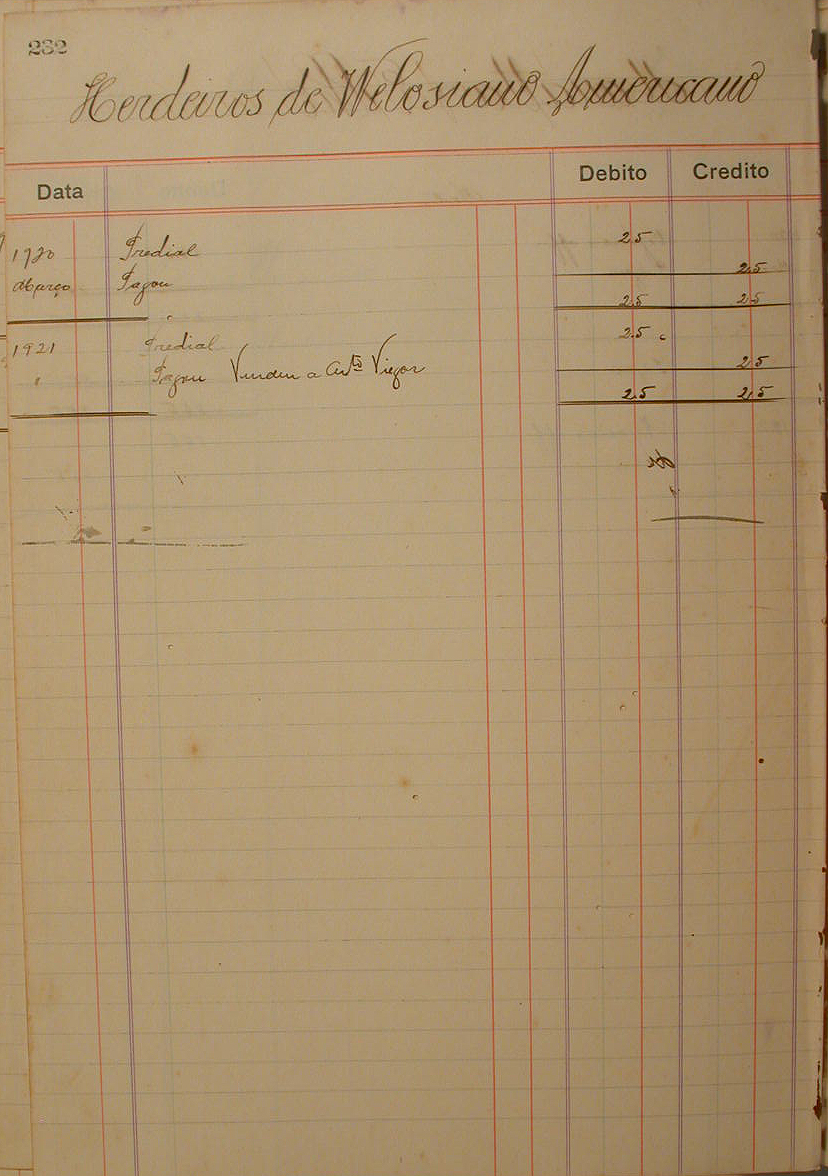 232
Herdeiros de Welosiano Americano
Data Debito Credito
1920 Predial 25
Março Pagou 25
25 25
1921 Predial 25
" Pagou Vendeu a Antº 25
25 25